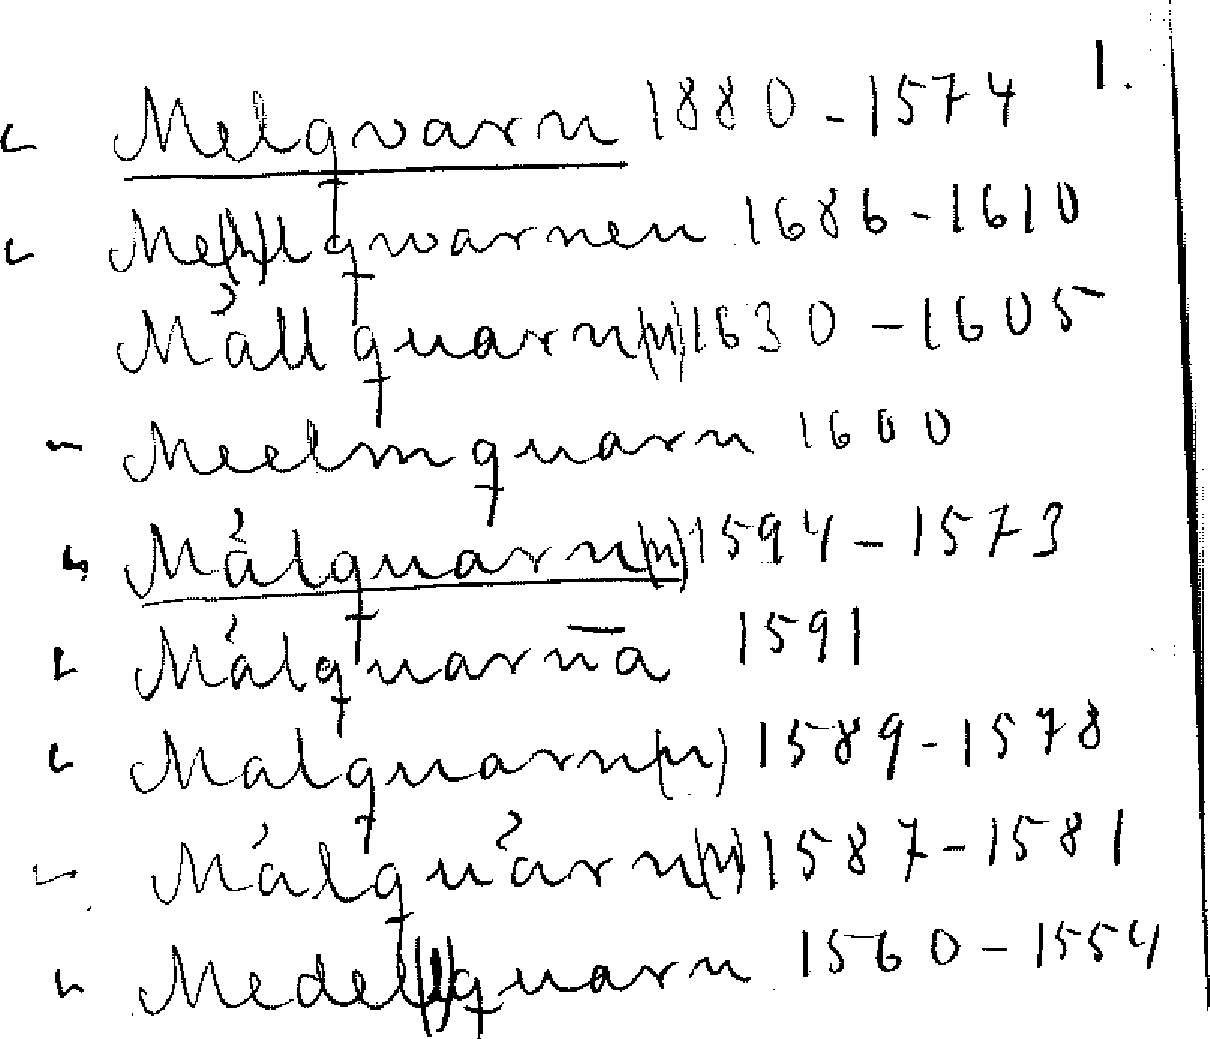 1.
Melqvarn 1880-1574
Me(h)lqwarnen 1686-1610
Måll quarn(n) 1630-1605
Meelm quarn 1600
Målquarn(n) 1594-1573
Målquarn̄a 1591
Malquarn(n) 1589-1578
Målquårn(n) 1587-1581
Medel(l)quarn 1560-1554